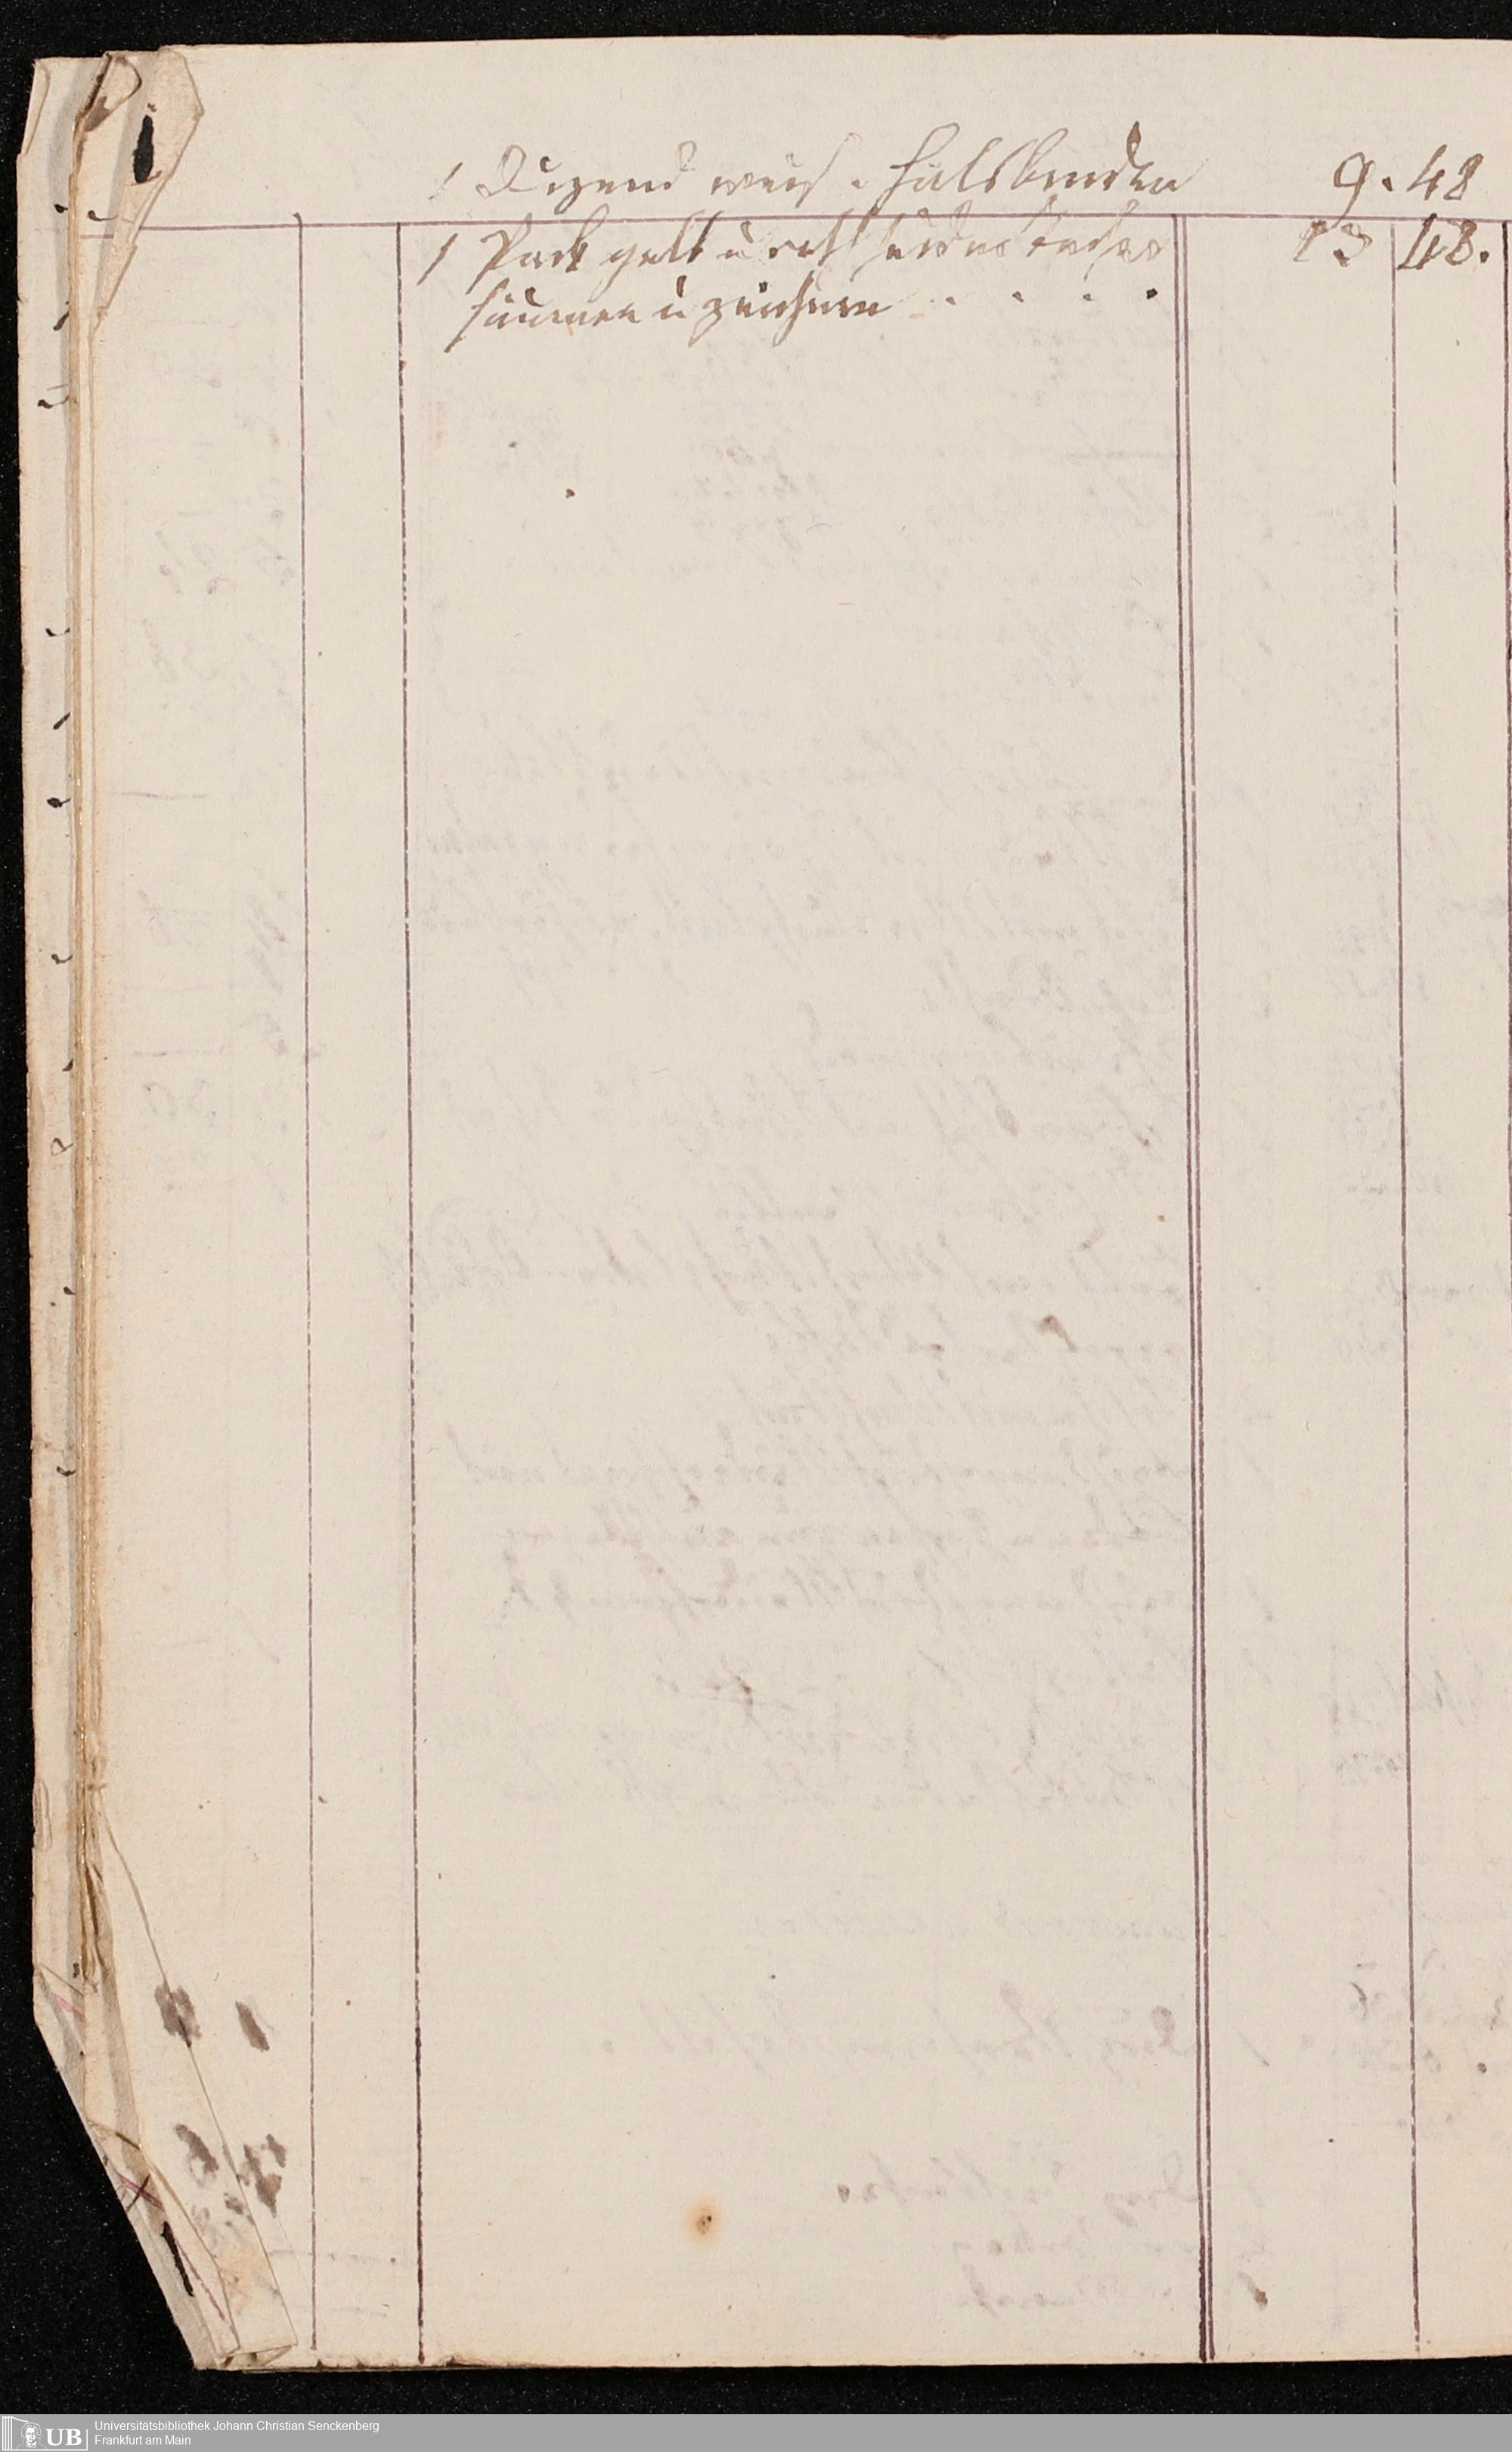 1 Duzend weis. Halsbinden 9. 48
1 Pack gelb u roth seidne Tücher 13 48.
säumen u zeichnen . . . .
UB Universitätsbibliothek Johann Christian Senckenberg
Frankfurt am Main